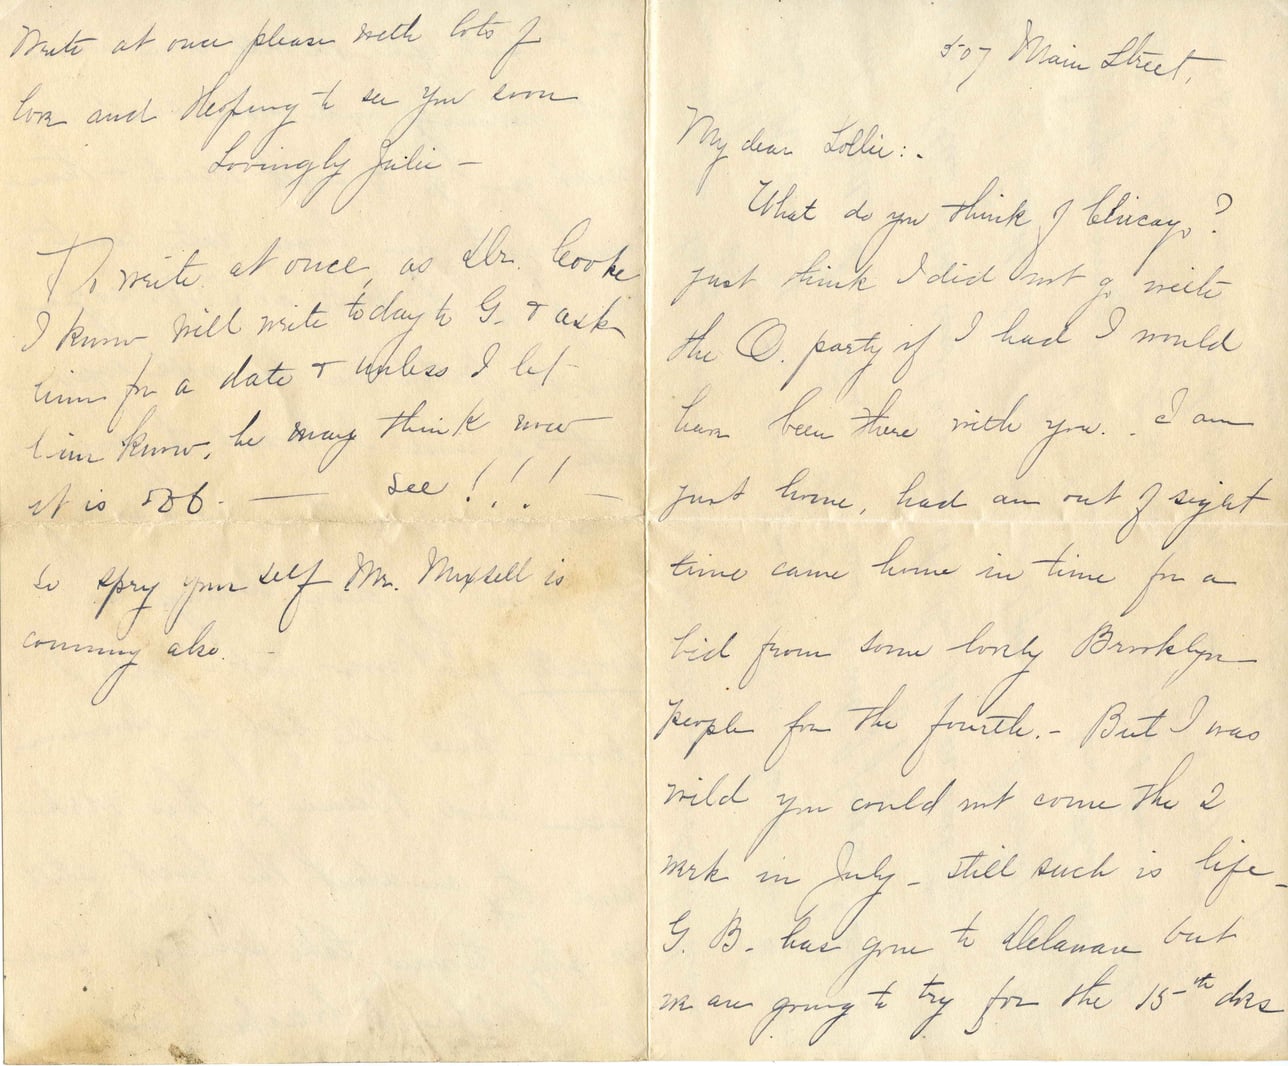 507 Main Street,
My dear Lollie:-
What do you think of Chicago?
just think I did not go with
the O. party if I had I would
have been there with you. I am
just home, had an out of sight
time came home in time for a
bid from some lovely Brooklyn
people for the fourth.- But I was
wild you could not come the 2
week in July - still such is life -
G. B. has gone to Delaware but
we are going to try for the 15th does
Write at once please with lots of
love and Hoping to see you soon
Lovingly Julie -
To write at once, as Dr. Cooke
I know will write today to G. & ask
him for a date & unless I let
him know, he may think now
it is off. — see!!! —
So spry yourself Mr. Mixsell is
comming also. -